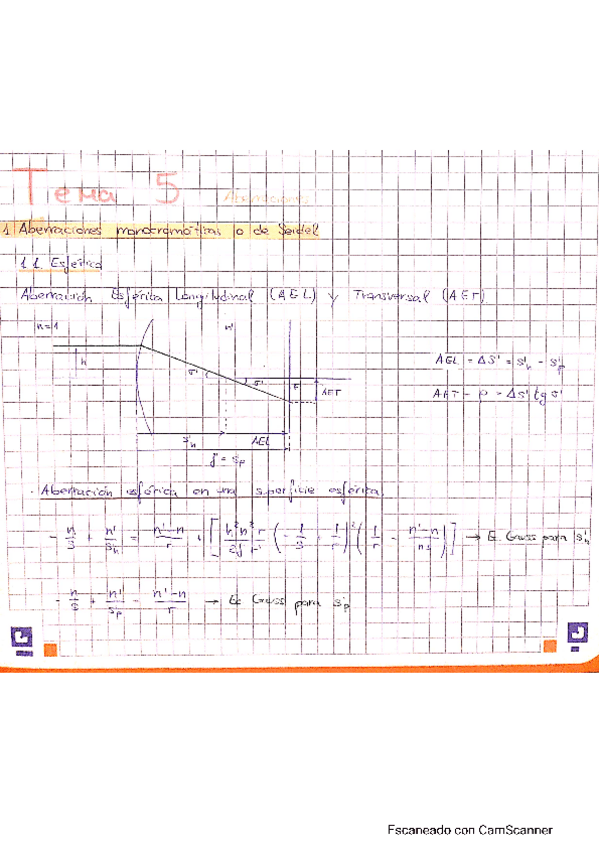 Tema 5 Aberraciones
1 Aberraciones monocromáticas o de Seidel
1.1. Esférica
Aberración Esférica Longitudinal (AEL) y Transversal (AET)
n=1 n'
h
σ' σ'
AET
AEL = Δs' = s'h - s'p
AET = ρ = Δs' tg σ'
s'h AEL
f' = s'p
· Aberración esférica en una superficie esférica.
- n/s + n'/s'h = n'-n/r + → Ec Gauss para s'h
- n/s + n'/s'p = n'-n/r → Ec Gauss para s'p
Escaneado con CamScanner